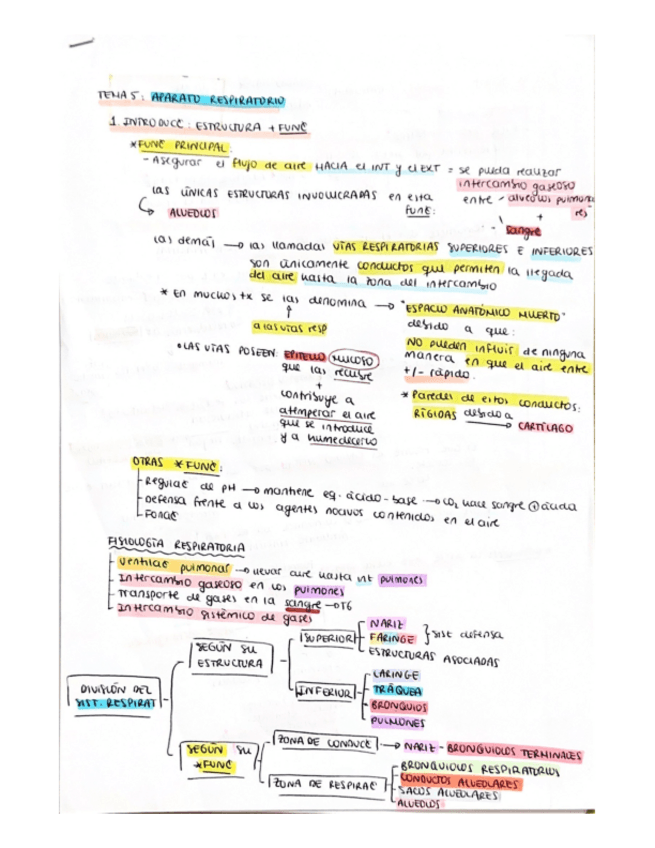 TEMA 5: APARATO RESPIRATORIO
1. INTRODUCC: ESTRUCTURA + FUNC
* FUNC PRINCIPAL:
- Asegurar el flujo de aire HACIA el INT y el EXT = se pueda realizar
intercambio gaseoso
entre - alveolos pulmona
res
+
- sangre
las ÚNICAS ESTRUCTURAS INVOLUCRADAS en esta
FUNC:
ALVEOLOS
las demás → las llamadas VÍAS RESPIRATORIAS SUPERIORES E INFERIORES
son únicamente conductos que permiten la llegada
del aire hasta la zona del intercambio
* En muchos tx se las denomina → "ESPACIO ANATÓMICO MUERTO"
a las vías resp
debido a que:
NO pueden influir de ninguna
manera en que el aire entre
+/- rápido.
• LAS VÍAS POSEEN: EPITELIO MUCOSO
que las recubre
+
contribuye a
atemperar el aire
que se introduce
y a humedecerlo
* Paredes de estos conductos:
RÍGIDAS debido a
→ CARTÍLAGO
OTRAS * FUNC:
- Regulac de pH → mantiene eq. ácido-base → CO₂ hace sangre ⊕ ácida
- Defensa frente a los agentes nocivos contenidos en el aire
- Fonac
FISIOLOGÍA RESPIRATORIA
- Ventilac pulmonar → llevar aire hasta int pulmones
- Intercambio gaseoso en los pulmones
- Transporte de gases en la sangre → O₂
- Intercambio sistémico de gases
DIVISIÓN DEL
SIST. RESPIRAT
SEGÚN SU
ESTRUCTURA
SUPERIOR
NARIZ
FARINGE
} sist defensa
ESTRUCTURAS ASOCIADAS
INFERIOR
LARINGE
TRÁQUEA
BRONQUIOS
PULMONES
SEGÚN SU
* FUNC
ZONA DE CONDUCC → NARIZ - BRONQUIOLOS TERMINALES
ZONA DE RESPIRAC
BRONQUIOLOS RESPIRATORIOS
CONDUCTOS ALVEOLARES
SACOS ALVEOLARES
ALVEOLOS